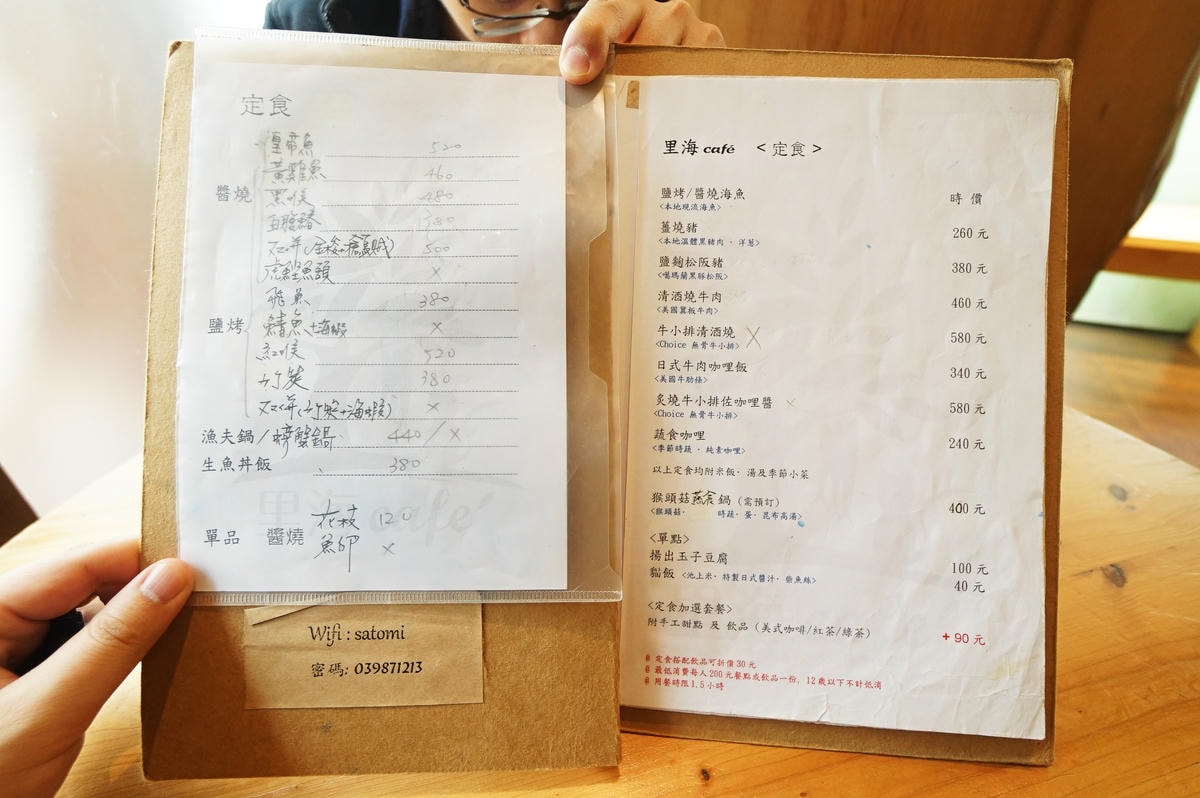 定食
皇帝魚 520
黃雞魚 460
醬燒
黑喉 480
380
双拼( 500
魚頭 x
飛魚 380
鹽烤
鯖魚+海蝦 x
紅喉 520
竹筴 380
双拼(竹筴+海蝦) x
漁夫鍋/螃蟹鍋 440/x
生魚丼飯 380
里海 café
單品 醬燒 花枝 120
魚卵 x
Wifi : satomi
密碼: 039871213
里海 café <定食>
鹽烤/醬燒海魚 時 價
<本地現流海魚>
薑燒豬 260 元
<本地溫體黑豬肉 · 洋蔥>
鹽麴松阪豬 380 元
<噶瑪蘭黑豚松阪>
清酒燒牛肉 460 元
<美國翼板牛肉>
牛小排清酒燒 X 580 元
<Choice 無骨牛小排>
日式牛肉咖哩飯 340 元
<美國牛肋條>
炙燒牛小排佐咖哩醬 x 580 元
<Choice 無骨牛小排>
蔬食咖哩 240 元
<季節時蔬 · 純素咖哩>
以上定食均附米飯· 湯及季節小菜
猴頭菇蔬食鍋 (需預訂) 400 元
<猴頭菇· 時蔬· 蛋· 昆布高湯>
<單點>
揚出玉子豆腐 100 元
貓飯 <池上米· 特製日式醬汁· 柴魚絲> 40 元
<定食加選套餐>
附手工甜點 及 飲品 (美式咖啡/紅茶/綠茶) + 90 元
※ 定食搭配飲品可折價 30 元
※ 最低消費每人 200 元餐點或飲品一份, 12 歲以下不計低消
※ 用餐時限 1.5 小時